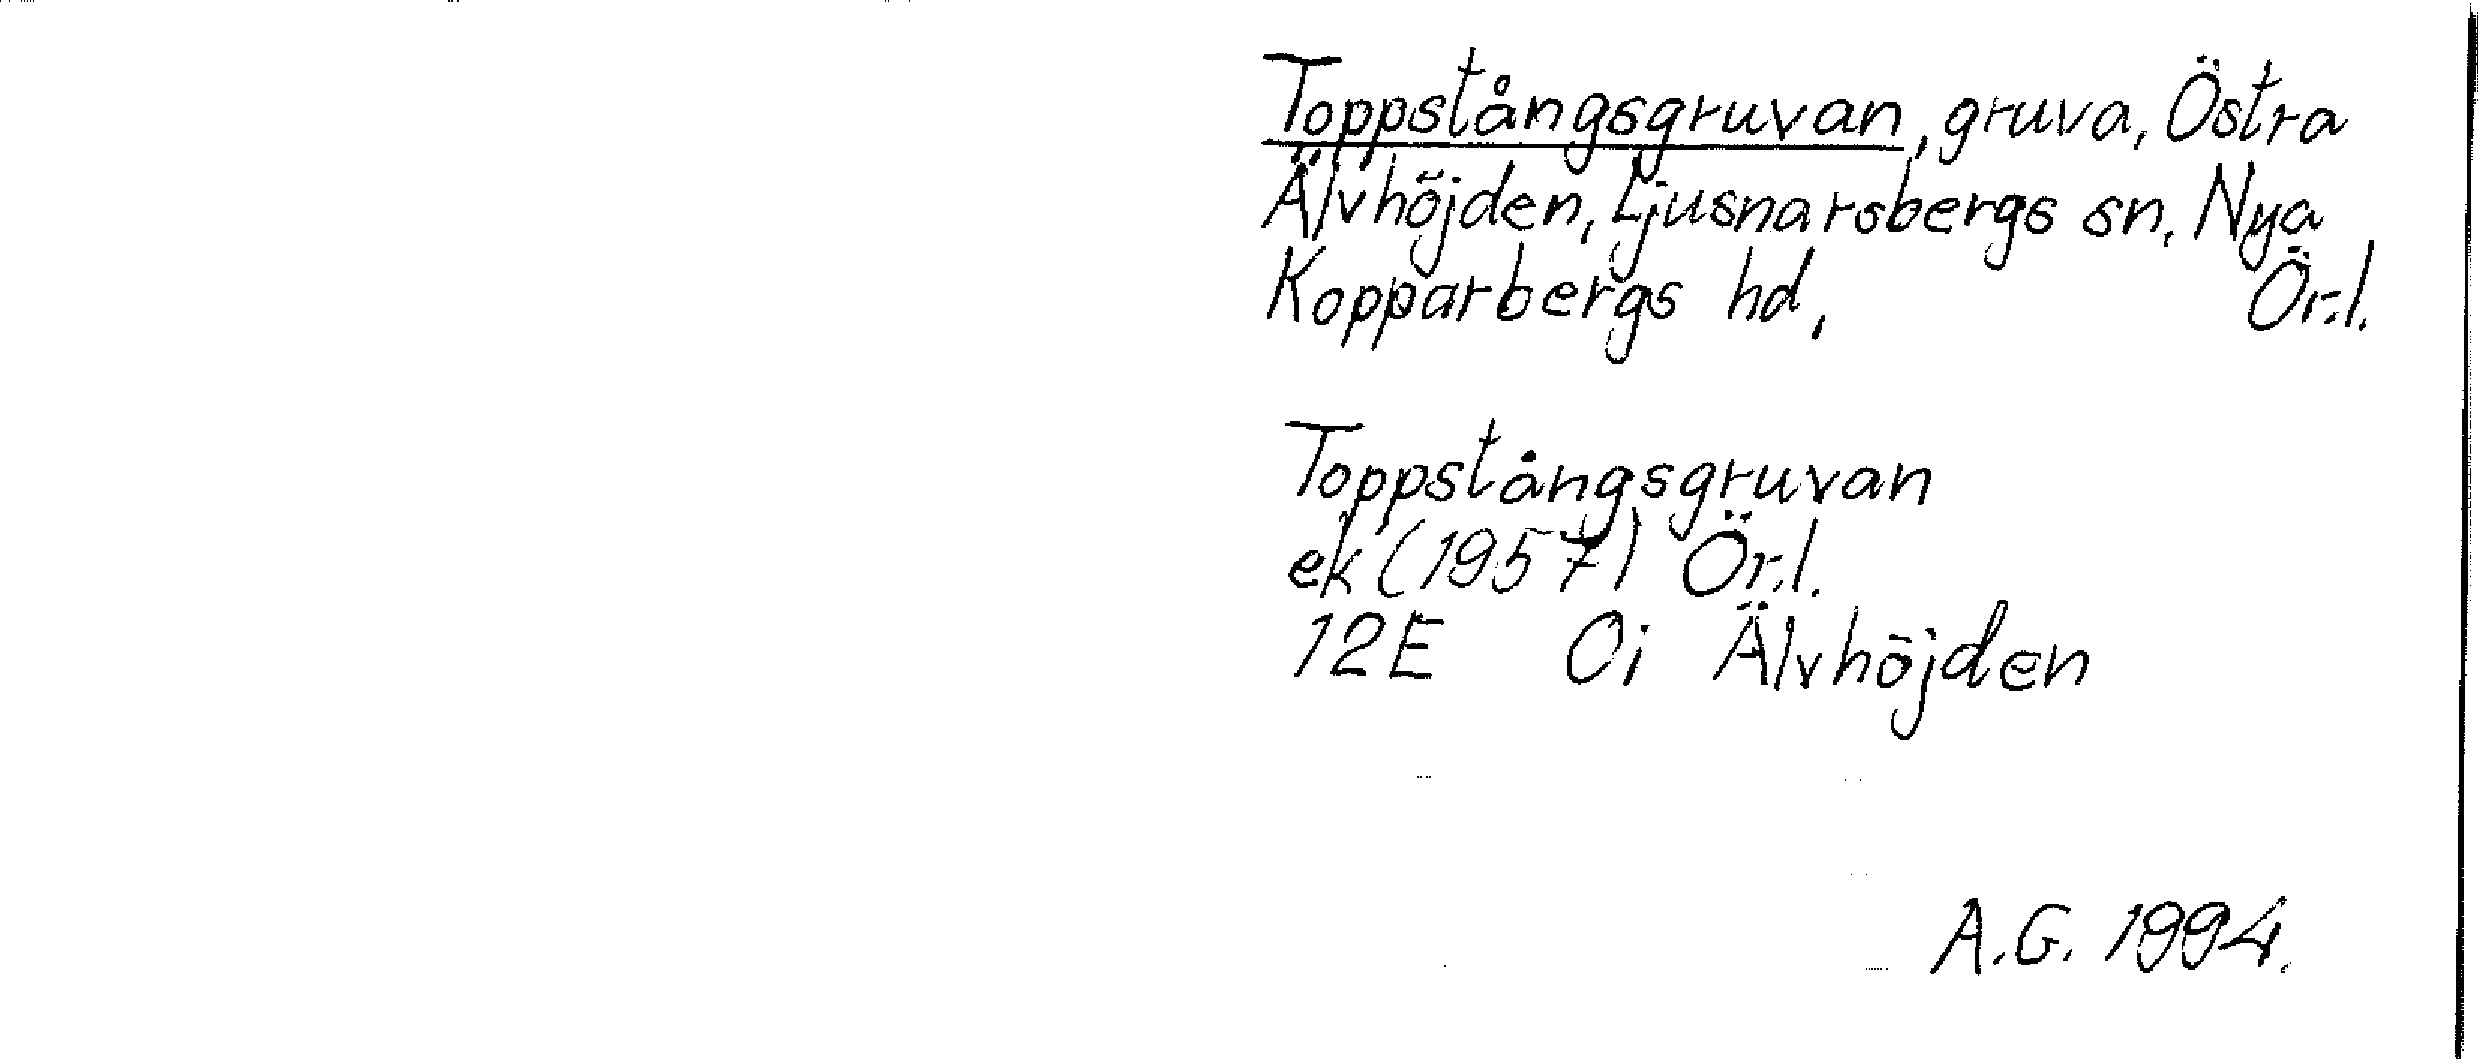 Toppstångsgruvan, gruva, Östra
Älvhöjden, Ljusnarsbergs sn, Nya
Kopparbergs hd, Ör.l.
Toppstångsgruvan
ek (1957) Ör.l.
12E 0i Älvhöjden
A.G. 1994.